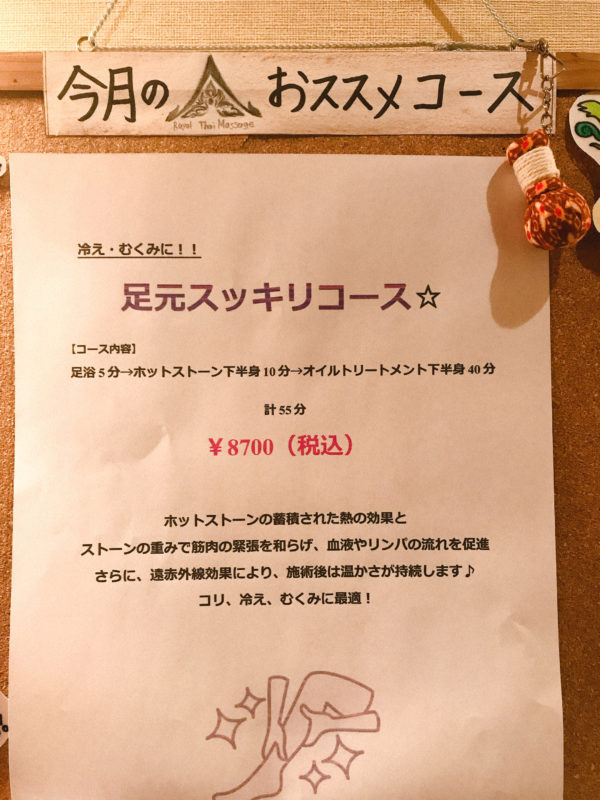 今月の おススメコース
Royal Thai Massage
冷え・むくみに！！
足元スッキリコース☆
【コース内容】
足浴5分→ホットストーン下半身10分→オイルトリートメント下半身40分
計55分
￥8700（税込）
ホットストーンの蓄積された熱の効果と
ストーンの重みで筋肉の緊張を和らげ、血液やリンパの流れを促進
さらに、遠赤外線効果により、施術後は温かさが持続します♪
コリ、冷え、むくみに最適！